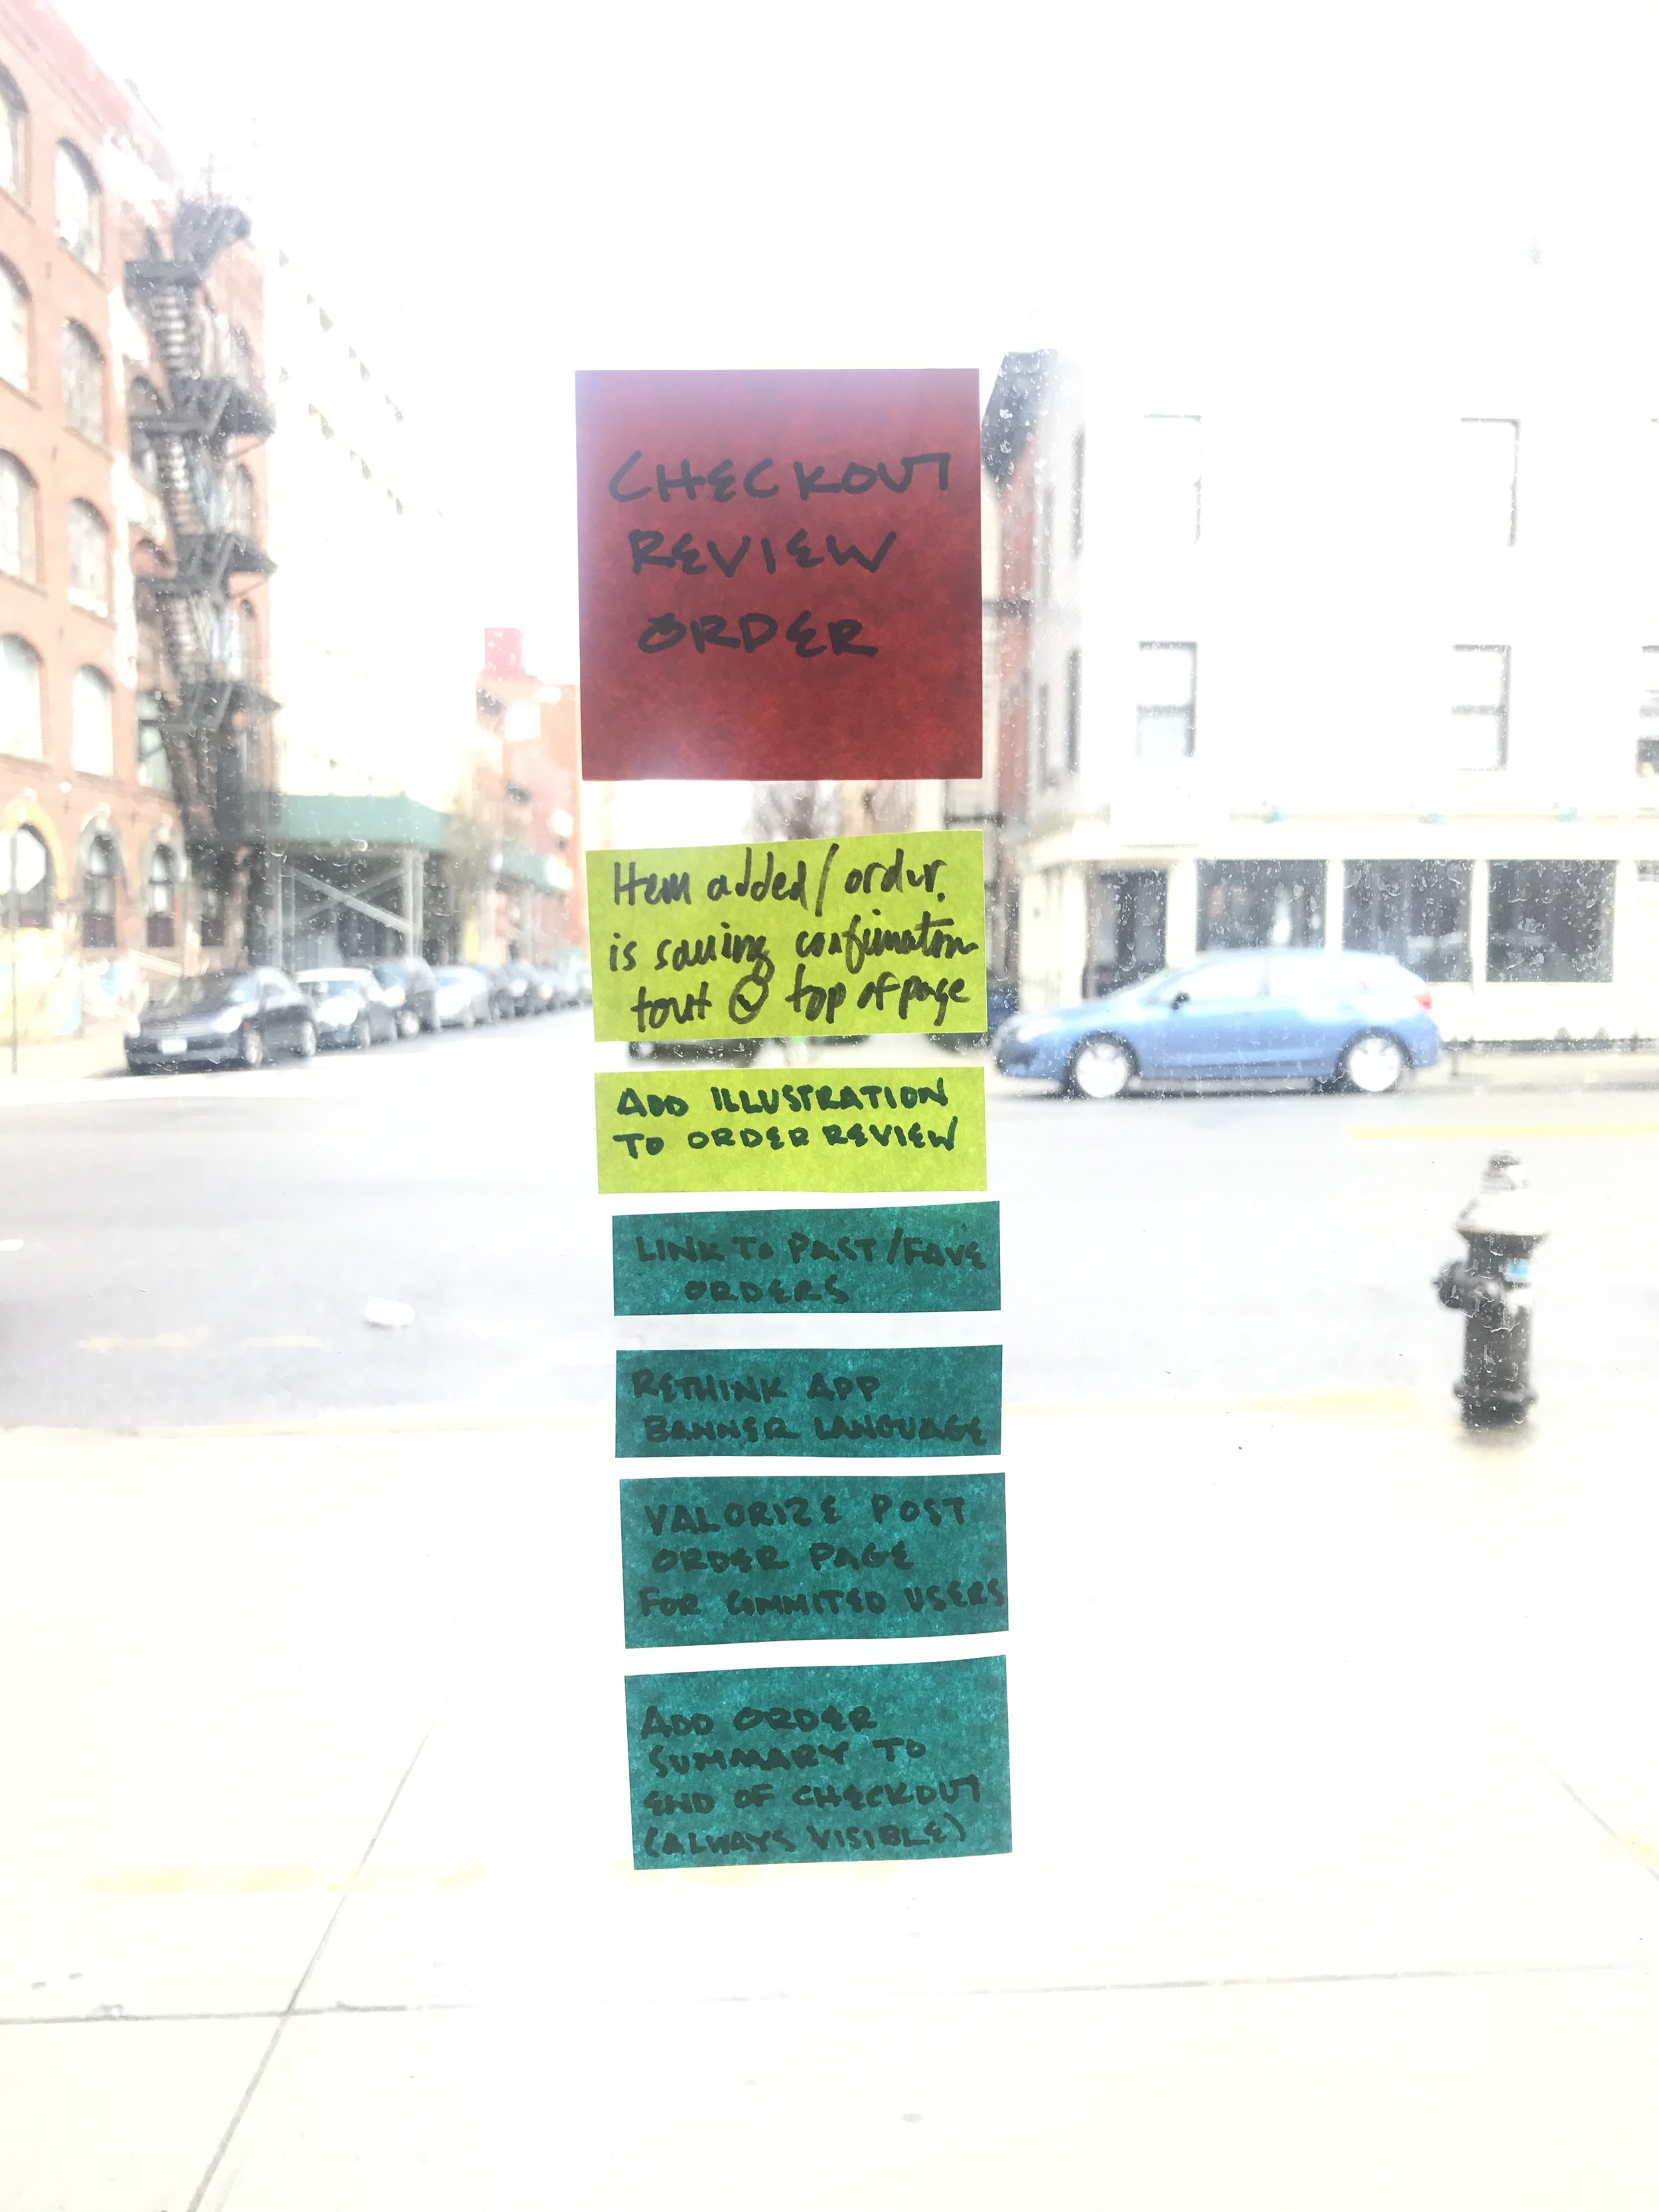 CHECKOUT
REVIEW
ORDER
Item added/order
is saving confirmation
tout @ top of page
ADD ILLUSTRATION
TO ORDER REVIEW
LINK TO PAST/FAVE
ORDERS
RETHINK APP
BANNER LANGUAGE
VALORIZE POST
ORDER PAGE
FOR COMMITED USERS
ADD ORDER
SUMMARY TO
END OF CHECKOUT
(ALWAYS VISIBLE)